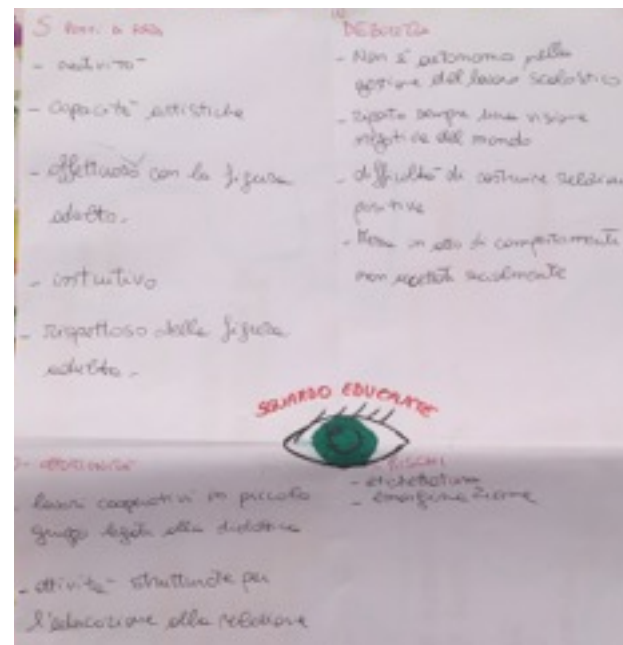 S Punti di forza
- creatività
- capacità artistiche
- affettuoso con la figura
adulto.
- intuitivo
- rispettoso della figura
adulta.
DEBOLEZZA
- Non è autonomo nella
gestione del lavoro scolastico
- riporta sempre una visione
negativa del mondo
- difficoltà di costruire relazioni
positive
- Messa in atto di comportamenti
non accettati socialmente
SGUARDO EDUCANTE
O- OPPORTUNITÀ
- lavori cooperativi in piccolo
gruppo legati alla didattica
- attività strutturate per
l'educazione alla relazione
RISCHI
- etichettatura
- emarginazione